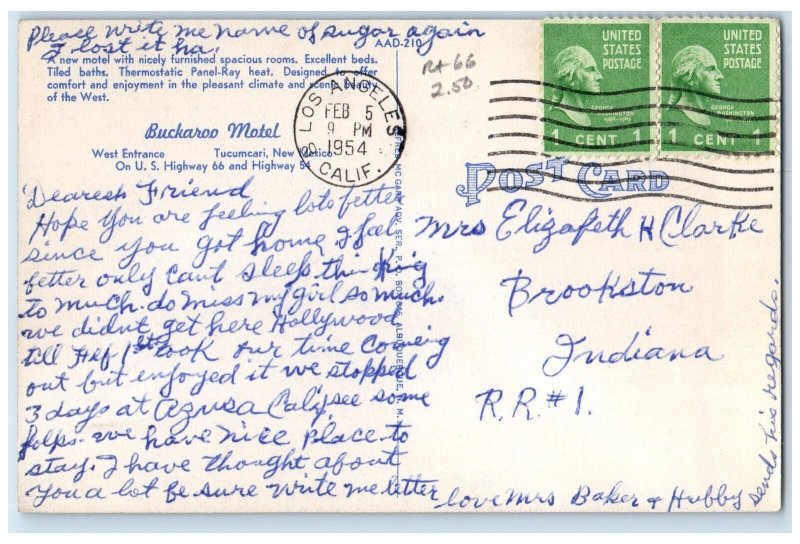 Please write me name of sugar again
I lost it ha.
AAD-210
A new motel with nicely furnished spacious rooms. Excellent beds.
Tiled baths. Thermostatic Panel-Ray heat. Designed to offer
comfort and enjoyment in the pleasant climate and scenic beauty
of the West.
Buckaroo Motel
West Entrance Tucumcari, New Mexico
On U. S. Highway 66 and Highway 54
Rt 66
2.50
LOS ANGELES
FEB 5
9 PM
1954
CALIF.
UNITED STATES POSTAGE
GEORGE WASHINGTON
1 CENT 1
UNITED STATES POSTAGE
GEORGE WASHINGTON
1 CENT 1
POST CARD
Dearest Friend
Hope you are feeling lots better
since you got home I feel
better only cant sleep thinking
to much. do miss my girl so much.
we didnt get here Hollywood
till Feb 1st took our time coming
out but enjoyed it we stopped
3 days at Azusa Calif see some
folks. we have nice place to
stay. I have thought about
you a lot be sure write me letter
love Mrs Baker & Hubby
sends his regards.
Mrs Elizabeth H Clarke
Brookston
Indiana
R.R. #1.
ADV. SER., P. O. BOX ALBUQUERQUE, N. M.